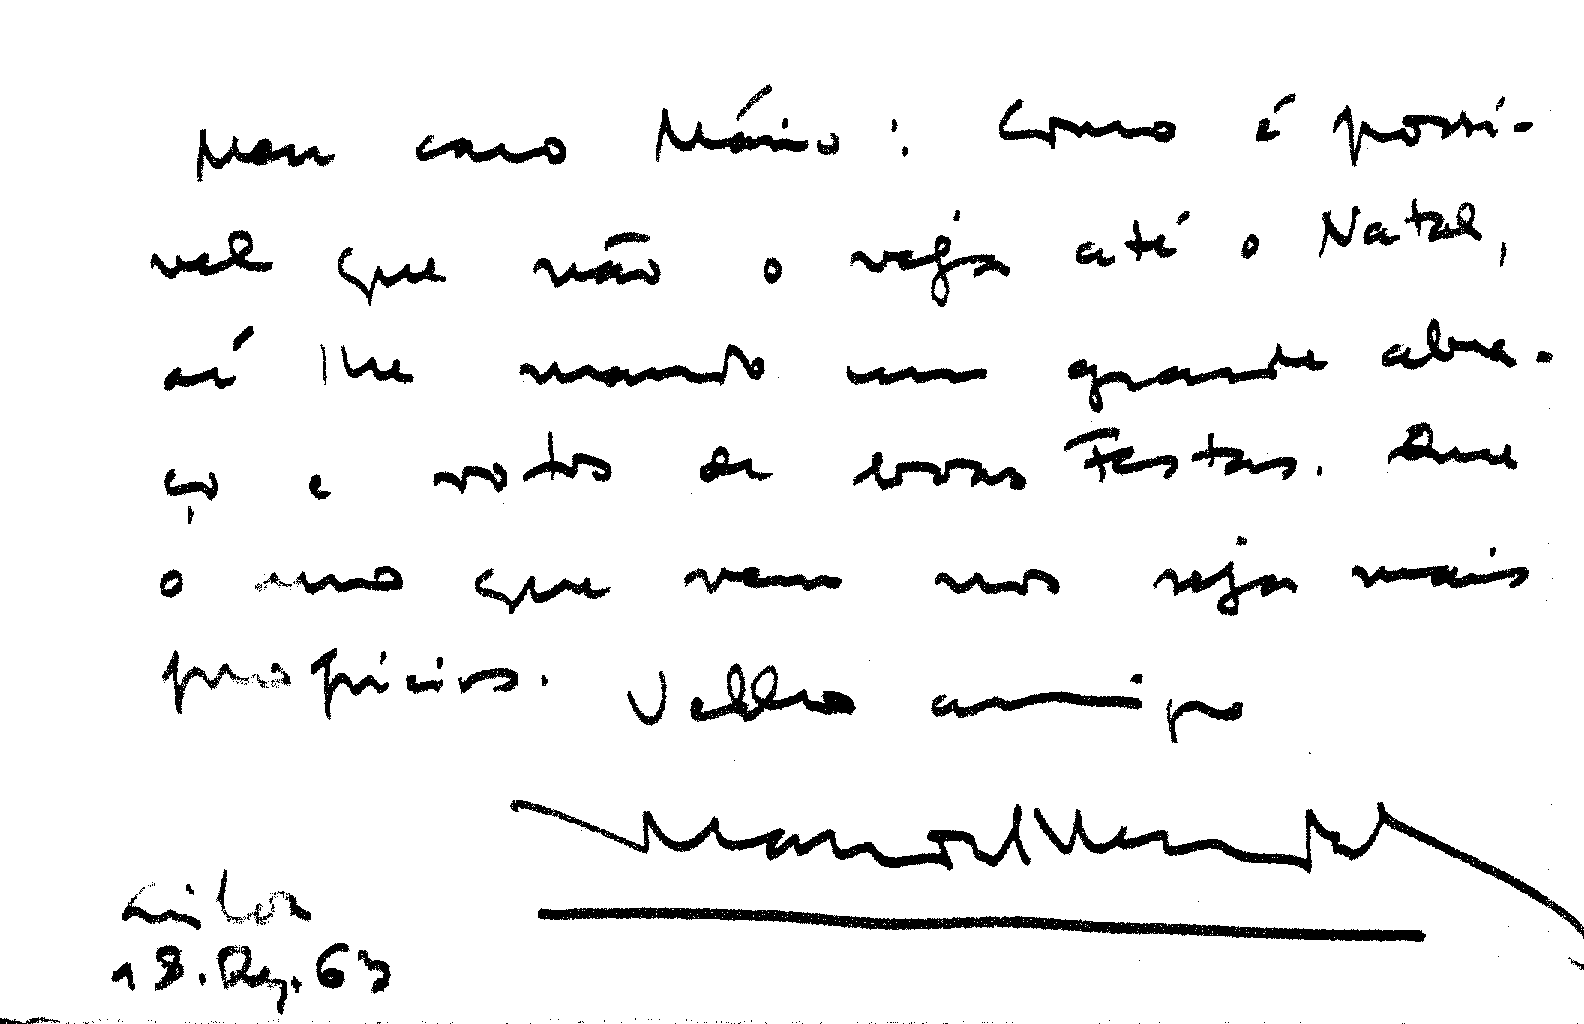 Meu caro Mário: Como é possí-
vel que não o veja até o Natal,
aí lhe mando um grande abra-
ço e votos de boas Festas. Que
o ano que vem nos seja mais
propício. Velho amigo
Manuel Mendes
Lisboa
18. Dez. 63